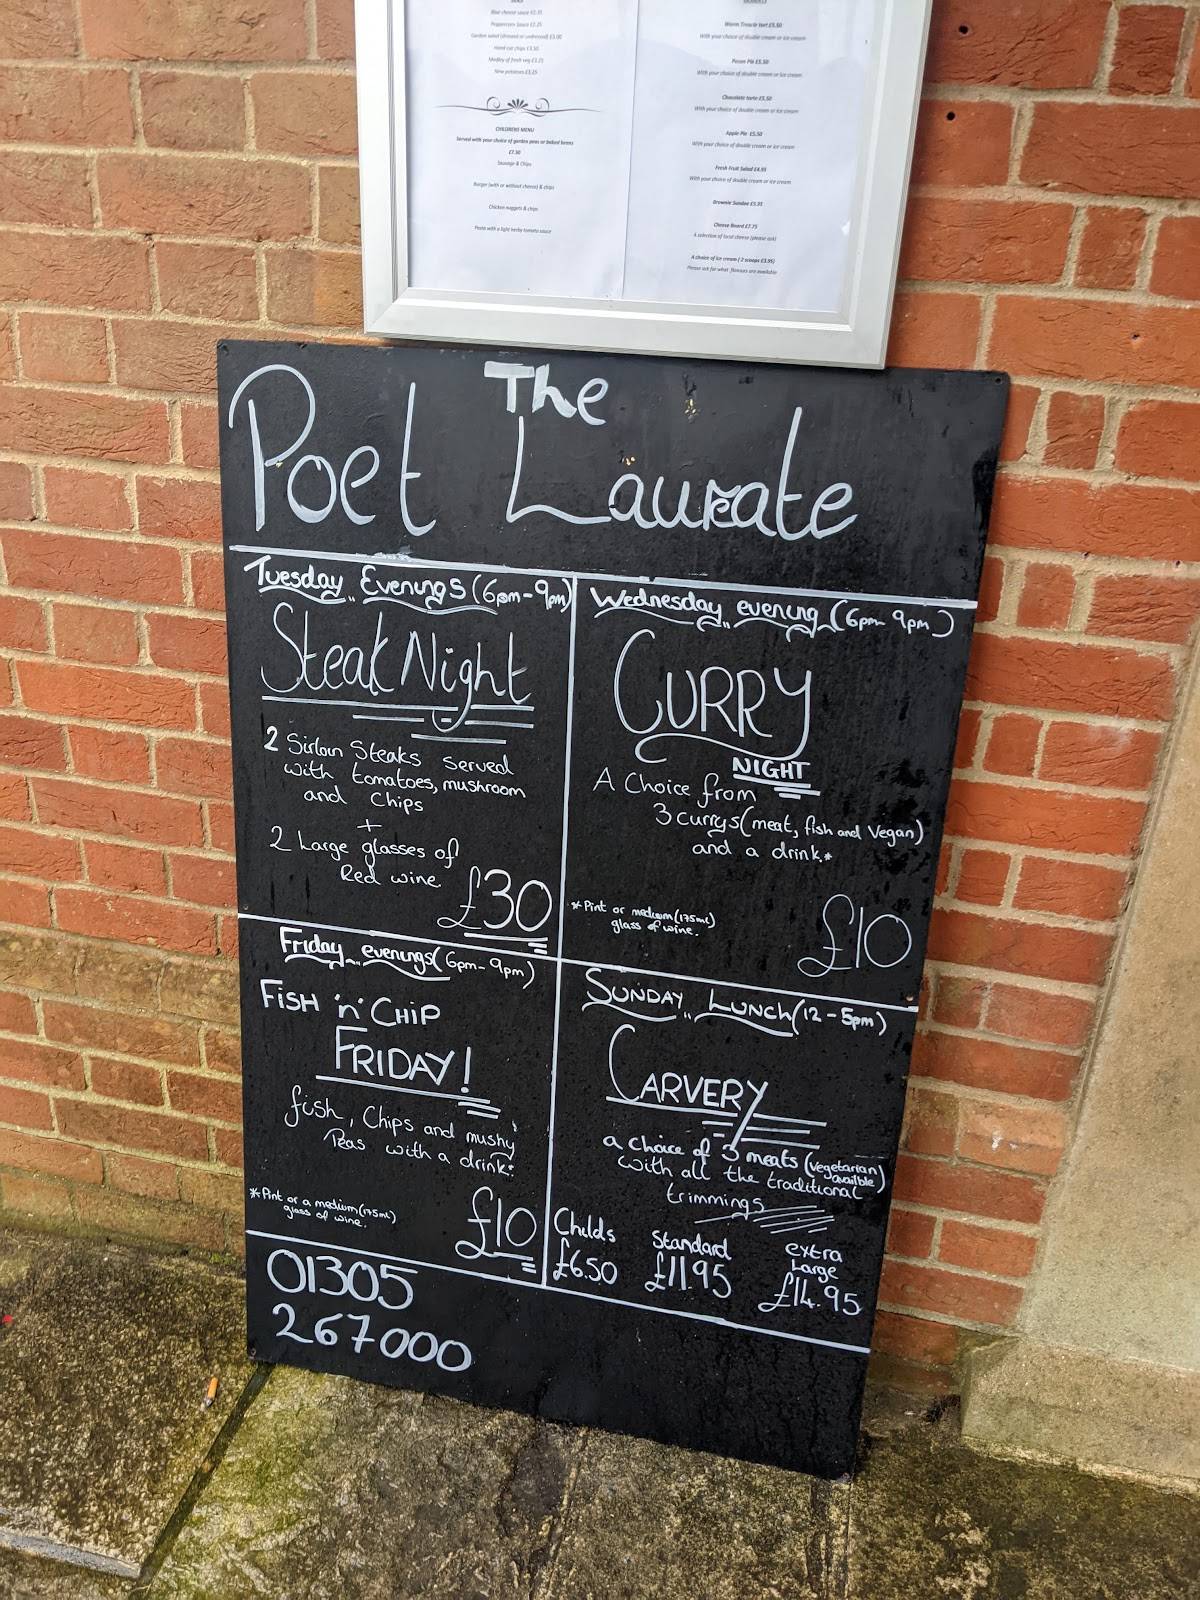 Blue cheese sauce £2.25
Peppercorn Sauce £2.25
Garden salad (dressed or undressed) £3.00
Hand cut chips £3.50
Medley of fresh veg £3.25
New potatoes £3.25
CHILDRENS MENU
Served with your choice of garden peas or baked beans
£7.50
Sausage & Chips
Burger (with or without cheese) & chips
Chicken nuggets & chips
Pasta with a light herby tomato sauce
Warm Treacle tart £5.50
With your choice of double cream or ice cream
Pecan Pie £5.50
With your choice of double cream or ice cream
Chocolate torte £5.50
With your choice of double cream or ice cream
Apple Pie £5.50
With your choice of double cream or ice cream
Fresh Fruit Salad £4.95
With your choice of double cream or ice cream
Brownie Sundae £5.95
Cheese Board £7.75
A selection of local cheese (please ask)
A choice of ice cream ( 2 scoops £3.95)
Please ask for what flavours are available
The
Poet Laureate
Tuesday Evenings (6pm-9pm)
Steak Night
2 Sirloin Steaks served
with tomatoes, mushroom
and Chips
+
2 Large glasses of
Red wine
£30
Wednesday evening (6pm-9pm)
CURRY
NIGHT
A Choice from
3 currys (meat, fish and Vegan)
and a drink.*
* Pint or medium (175ml)
glass of wine.
£10
Friday evenings (6pm-9pm)
FISH 'n' CHIP
FRIDAY!
fish, Chips and mushy
Peas with a drink*
* Pint or a medium (175ml)
glass of wine.
£10
SUNDAY LUNCH (12-5pm)
CARVERY
a choice of 3 meats (vegetarian
availble)
with all the traditional
trimmings
Childs
£6.50
Standard
£11.95
extra
Large
£14.95
01305
267000